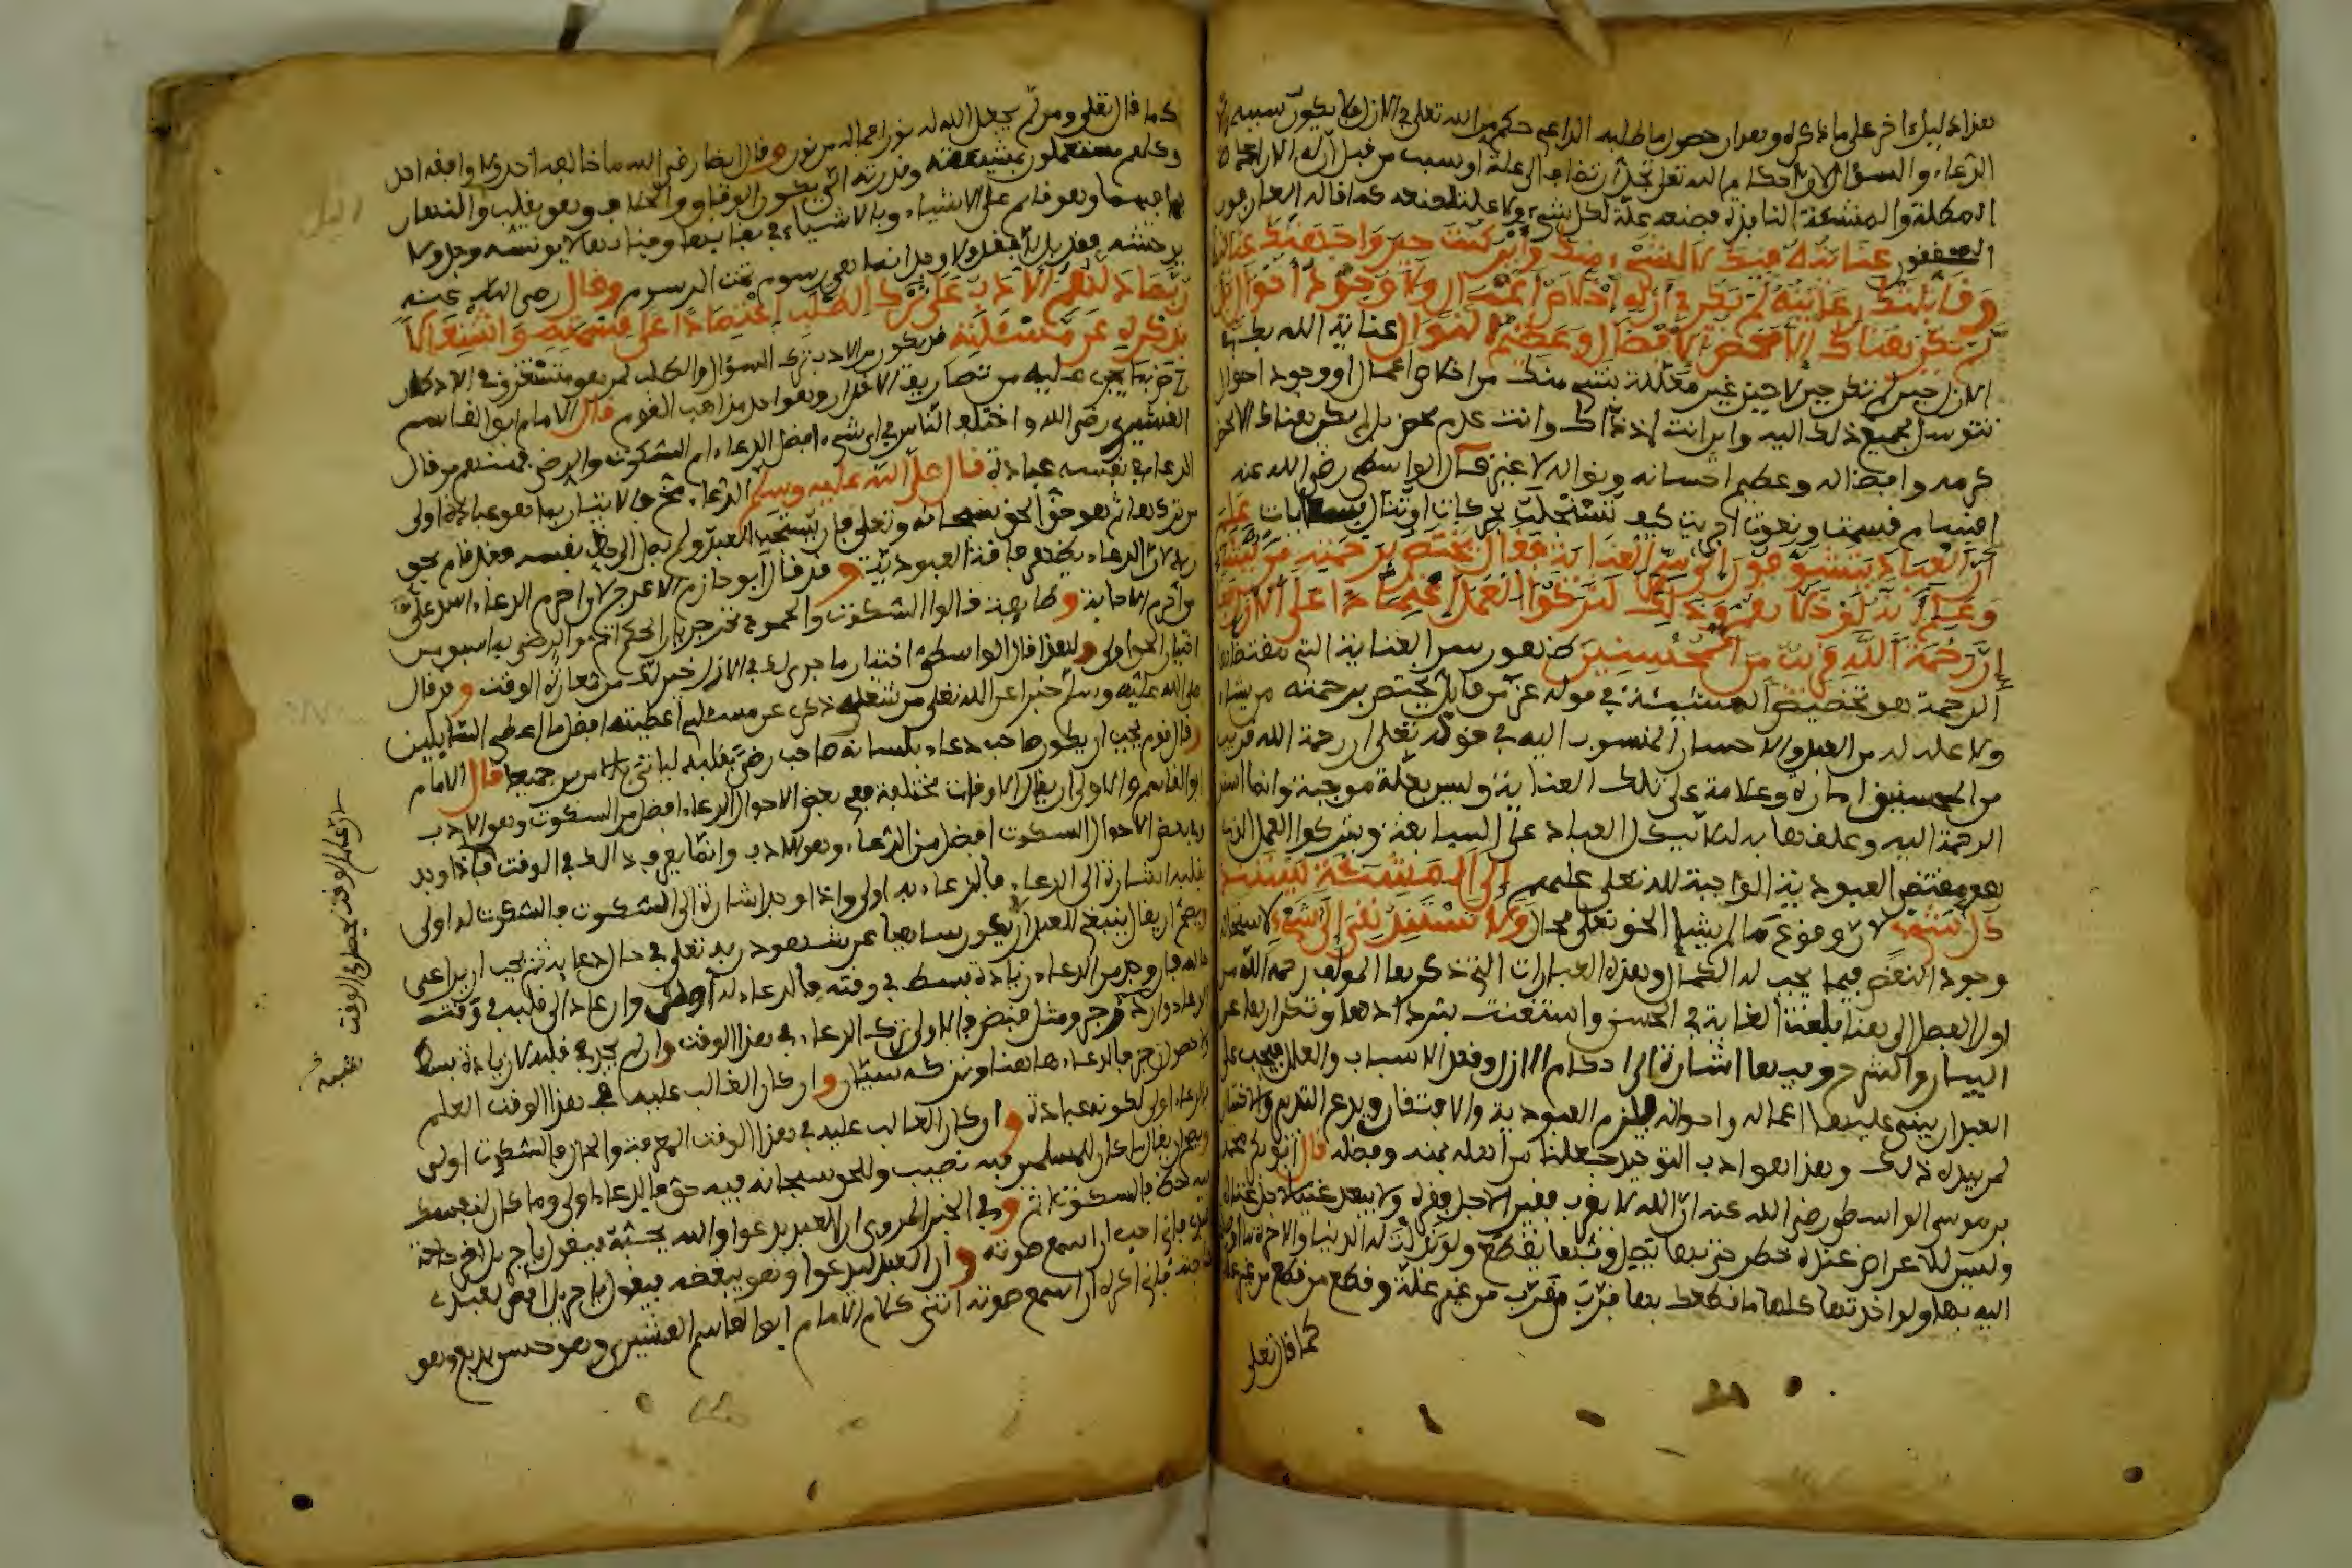 هذا دليل اخر على ما ذكره وهو ان حصول ما طلبه الداعي حكم من الله تعلى في الازل فلا يكون سببه
الدعاء والسؤال لان احكام الله تعلى تجل ان تضاف الى علة او سبب من قبل ان له الارادة
الكاملة والمشيئة النافذة فصنعه علة لكل شيء ولا علة لصنعه كما قاله العارفون
المحققون عنايته فيك لا لشيء منك واين كنت حين واجهتك عنايته
وقابلتك رعايته لم يكن في ازله اخلاص اعمال ولا وجود احوال بل
لم يكن هناك الا محض الافضال وعظيم النوال عناية الله بك في
الازل حين لم تكن حين لا حين غير معللة بشيء منك من اخلاص اعمال او وجود احوال
تتوسل بجميع ذلك اليه واين انت اذ ذاك وانت عدم محض بل لم يكن هناك الا محض
كرمه وافضاله وعظيم احسانه ونواله لا غير قال الواسطي رضي الله عنه
اقسام قسمت ونعوت اجريت كيف تستجلب بحركات او تنال بسعايات علم
ان العباد يتشوفون الى سر العناية فقال يختص برحمته من يشاء
وعلم انه لو خلاهم وذلك لتركوا العمل اعتمادا على الازل فقال
ان رحمة الله قريب من المحسنين ظهور سر العناية التي مقتضاها
الرحمة هو تخصيص المشيئة في قوله عز من قائل يختص برحمته من يشاء
ولا علة له من العبد والاحسان المنسوب اليه في قوله تعلى ان رحمة الله قريب
من المحسنين امارة وعلامة على تلك العناية وليس بعلة موجبة وانما اسند
الرحمة اليه وعلقها به لئلا يتكل العباد على السابقة ويتركوا العمل الذي
هو مقتضى العبودية الواجبة لله تعلى عليهم الى المشيئة يستند
كل شيء لان وقوع ما لم يشإ الحق تعلى محال ولا تستند هي الى شيء لاستحالة
وجود النقص فيما يجب له الكمال وهذه العبارات التي ذكرها المولف رحمه الله من
اول الفصل الى هنا بلغت الغاية في الحسن واستغنت بسردها وتكرارها عن
البيان والشرح وفيها اشارة الى احكام الازل وفقد الاسباب والعلل فيجب على
العبد ان يبني عليها اعماله واحواله فيلزم العبودية والافتقار ويدع التدبير والاختيار
لمن بيده ذلك وهذا هو ادب التوحيد جعلنا الله من اهله بمنه وفضله قال ابو بكر محمد
بن موسى الواسطي رضي الله عنه ان الله لا يقرب فقيرا لاجل فقره ولا يبعد غنيا لاجل غناه
وليس للاعراض عنده خطر حتى بها يصل وبها يقطع ولو بذلت له الدنيا والاخرة ما اوصلك
اليه بها ولو اخذتها كلها ما قطعك بها قرب من قرب من غير علة وقطع من قطع من غير علة
كما قال تعلى
كما قال تعلى ومن لم يجعل الله له نورا فما له من نور وقال ايضا رضي الله عنه ما خالفه احد ولا وافقه احد
وكلهم مستعملون بمشيئته وقدرته انى يكون الوفاق والخلاف وهو يقلب الليل والنهار
بما فيهما وهو قائم على الاشياء وبالاشياء في بقائها وفنائها لا يونسه وجد ولا
يوحشه فقد بل لا فقد ولا وجد انما هي رسوم تحت الرسوم وقال رضي الله عنه
ربما دلهم الادب على ترك الطلب اعتمادا على قسمته واشتغالا
بذكره عن مسئلته قد يكون من الادب ترك السؤال والطلب لمن هو مستغرق في الاذكار
راض بما يجري عليه من تصاريف الاقدار وهو احد مذاهب القوم قال الامام ابو القاسم
القشيري رضي الله عنه واختلف الناس في اي شيء افضل الدعاء ام السكوت والرضى فمنهم من قال
الدعاء في نفسه عبادة قال صلى الله عليه وسلم الدعاء مخ العبادة والاتيان بما هو عبادة اولى
من تركها ثم هو حق الحق سبحانه وتعلى فان لم يستجب للعبد ولم يصل الى حظ نفسه فقد قام بحق
ربه لان الدعاء اظهار فاقة العبودية وقد قال ابو حازم الاعرج لان احرم الدعاء اشد علي
من ان احرم الاجابة وطائفة قالوا السكوت والخمود تحت جريان الحكم اتم والرضى بما سبق من
اختيار الحق اولى ولهذا قال الواسطي اختيار ما جرى لك في الازل خير لك من معارضة الوقت وقد قال
صلى الله عليه وسلم خبرا عن الله تعلى من شغله ذكري عن مسئلتي اعطيته افضل ما اعطي السائلين
وقال قوم يجب ان يكون صاحب دعاء بلسانه صاحب رضى بقلبه لياتي بالامرين جميعا قال الامام
ابو القاسم والاولى ان يقال الاوقات مختلفة ففي بعض الاحوال الدعاء افضل من السكوت وهو الادب
وفي بعض الاحوال السكوت افضل من الدعاء وهو الادب وانما يعرف ذلك في الوقت فاذا وجد
بقلبه اشارة الى الدعاء فالدعاء به اولى واذا وجد اشارة الى السكوت فالسكوت له اولى
ويصح ان يقال ينبغي للعبد ان لا يكون ساهيا عن شهود ربه تعلى في حال دعائه ثم يجب ان يراعي
حاله فان وجد من الدعاء زيادة بسط في وقته فالدعاء له اولى وان عاد الى قلبه في وقت
الدعاء زجر ومثل قبض فالاولى ترك الدعاء في هذا الوقت وان لم يجد في قلبه لا زيادة بسط
ولا حصول زجر فالدعاء هاهنا وتركه سيان وان كان الغالب عليه في هذا الوقت العلم
فالدعاء اولى لكونه عبادة وان كان الغالب عليه في هذا الوقت المعرفة والحال فالسكوت اولى
ويصح ان يقال ما كان للمسلمين فيه نصيب وللحق سبحانه فيه حق فالدعاء اولى وما كان لنفسك
فيه حظ فالسكوت اتم وفي الخبر المروي ان العبد يدعوا والله يحبه فيقول يا جبريل اخر حاجة
عبدي فاني احب ان اسمع صوته وان العبد ليدعوا وهو يبغضه فيقول يا جبريل اقض لعبدي
حاجته فاني اكره ان اسمع صوته انتهى كلام الامام ابو القاسم القشيري وهو حسن بديع وهو